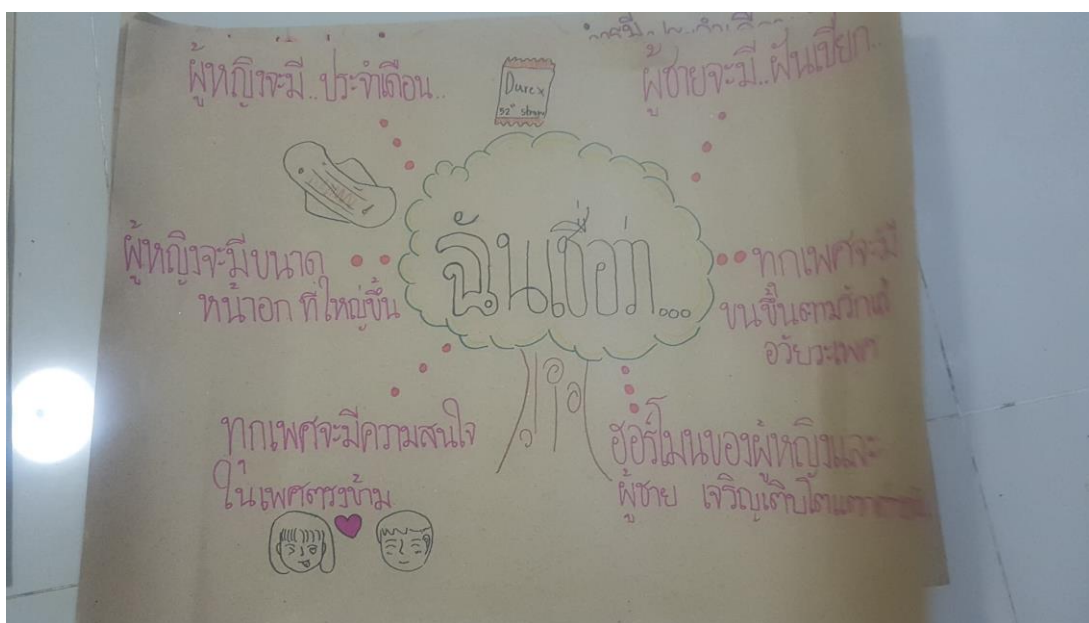 ผู้หญิงจะมี..ประจำเดือน..
Durex
52°
ผู้ชายจะมี..ฝันเปียก..
ผู้หญิงจะมีขนาด
หน้าอก ที่ใหญ่ขึ้น
ฉันเชื่อว่า...
ทุกเพศจะมี
ขนขึ้นตามรักแร้
อวัยวะเพศ
ทุกเพศจะมีความสนใจ
ในเพศตรงข้าม
ฮอร์โมนของผู้หญิงและ
ผู้ชาย เจริญเติบโต